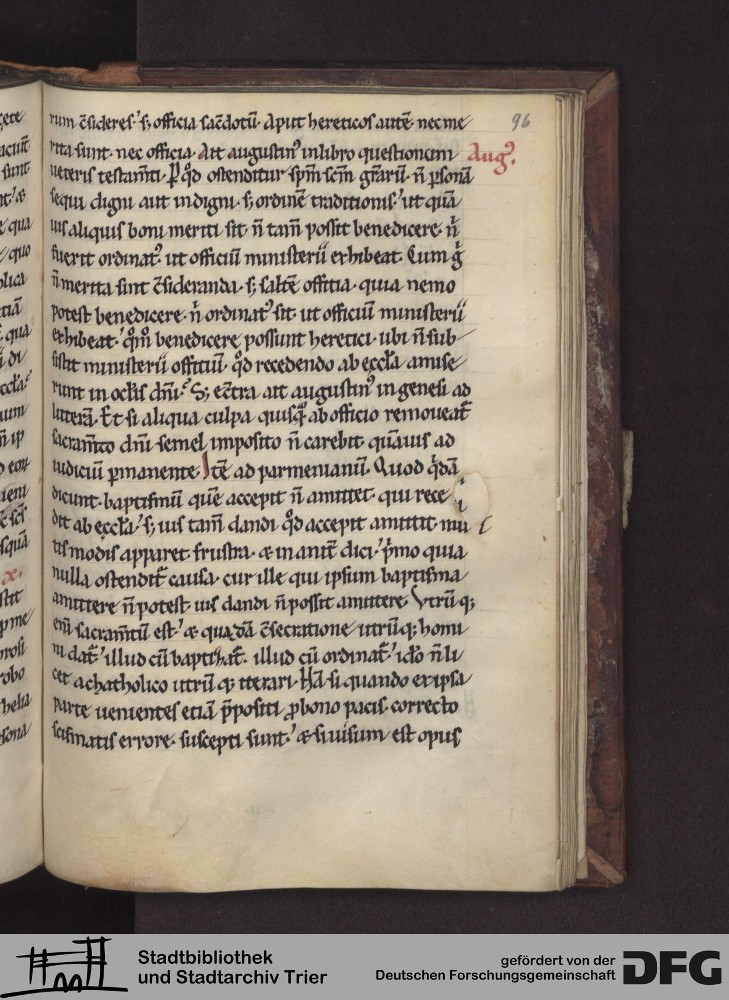 96
rum c̄sideres. s; officia sac̄dotū. Aput hereticos autē nec me
rita sunt. nec officia. Ait augustin᷒ in libro questionum
Aug᷒.
ueteris testam̄ti. P qd̄ ostenditur sp̄m sc̄m gr̄arū. n̄ psonā
sequi digni aut indigni. s; ordinē traditionis. ut quā
uis aliquis boni meriti sit. n̄ tam̄ possit benedicere. n̄
fuerit ordinat᷒. ut officiū ministerii exhibeat. Cum g̊
n̄ merita sint c̄sideranda. s; saltē offitia. quia nemo
potest benedicere. n̄ ordinat᷒ sit. ut officiū ministerii
exhibeat. qm̊ benedicere possunt heretici. ubi n̄ sub
sistit ministerii offitiū. qd̄ recedendo ab ęccl̄a amise
runt in oclis dn̄i. S; ec̄tra ait augustin᷒ in genesi ad
litterā. Et si aliqua culpa quisq̄ ab officio remoueat̄
sacram̄to dn̄i semel imposito n̄ carebit. quāuis ad
iudiciū pmanente. Itē ad parmenianū. Quod q̄dā
dicunt. baptismū quē accepit n̄ amittet. qui rece
dit ab ęccl̄a. s; ius tam̄ dandi qd̄ accepit amittit. mul
tis modis apparet frustra. & inanit̄ dici. p̄mo quia
nulla ostendit̄ causa. cur ille qui ipsum baptisma
amittere n̄ potest. ius dandi n̄ possit amittere. Vtrū q;
eni̅ sacram̄tū est. & quadā c̄secratione utrū q; homi
ni dat̄. illud cū baptizat̄. illud cū ordinat̄. ido̊ n̄ li
cet a chatholico utrū q; iterari. Nā si quando ex ipsa
parte uenientes etiā p̄positi p bono pacis. correcto
scismatis errore. suscepti sunt. & si uisum est opus
Stadtbibliothek
und Stadtarchiv Trier
gefördert von der
Deutschen Forschungsgemeinschaft
DFG